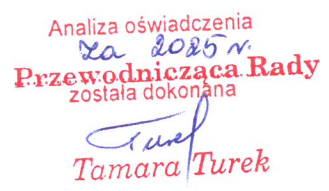 Analiza oświadczenia
za 2025 r.
Przewodnicząca Rady
została dokonana
Turek
Tamara Turek